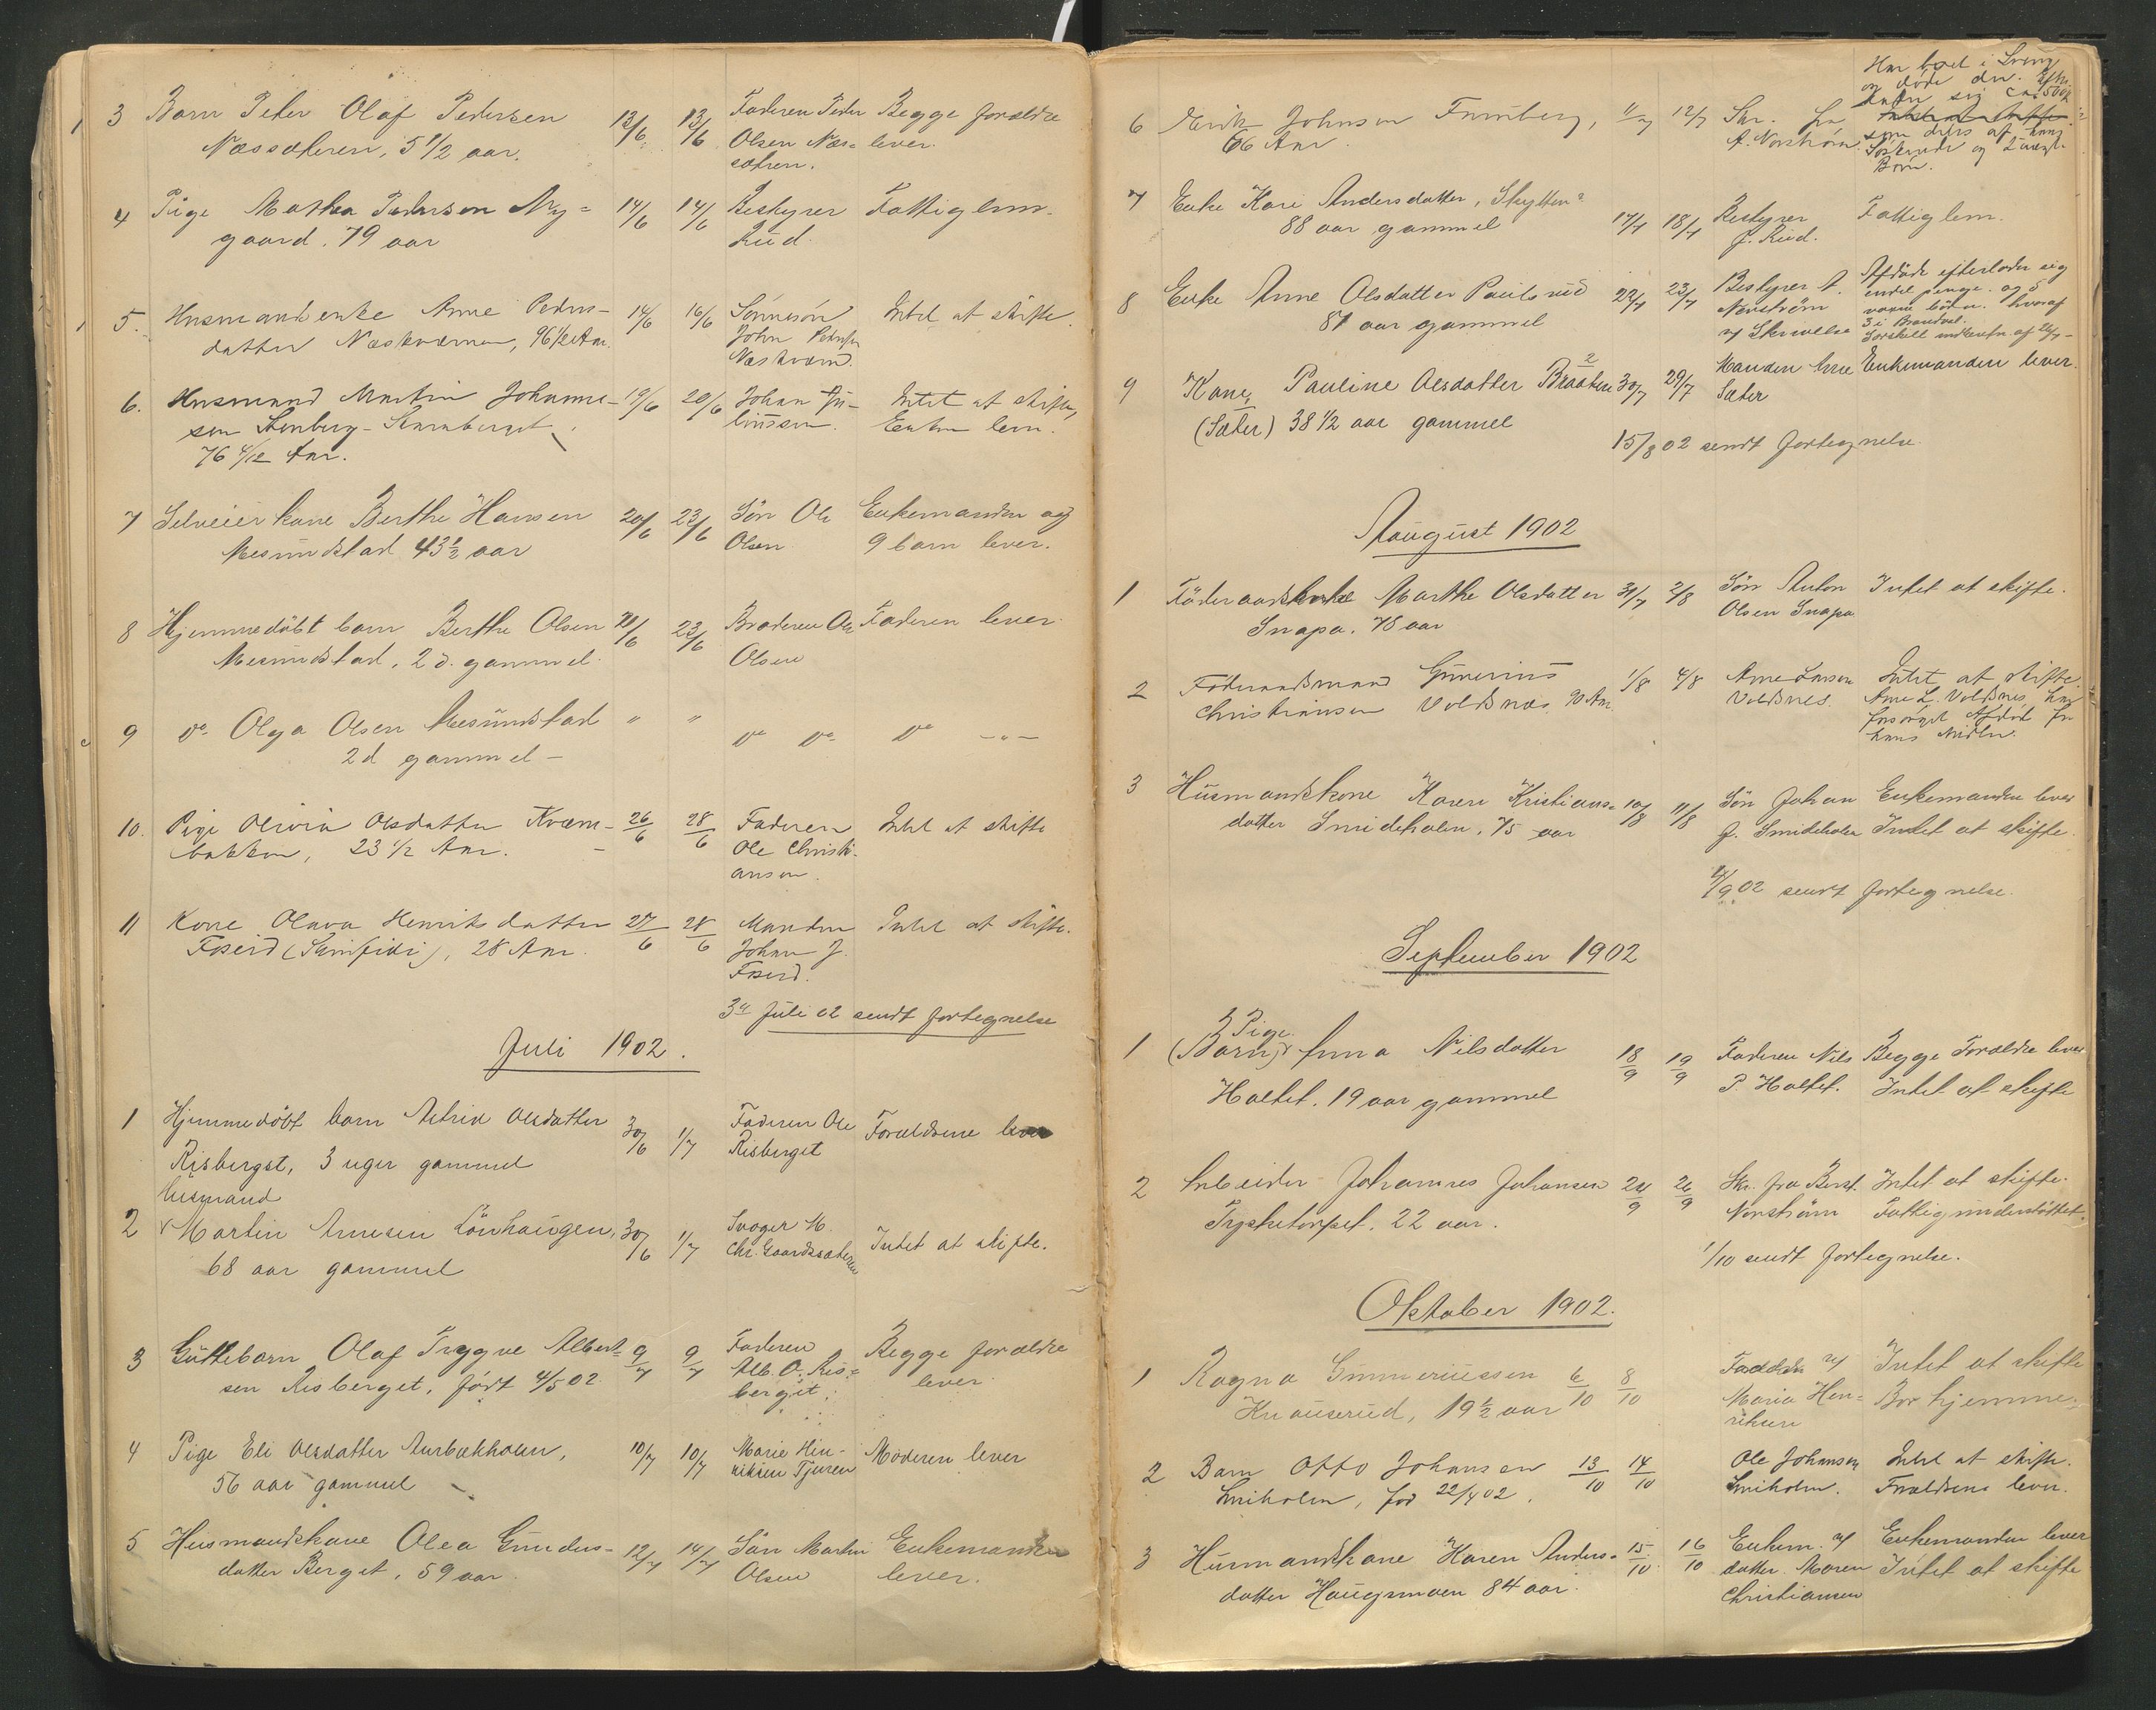 3 Barn Peter Olaf Pedersen 13/6 13/6 Faderen Peder Begge forældre
Næssæteren, 5 1/2 aar. Olsen Næs= lever.
sætren.
4 Pige Mathea Pedersen Ny= 14/6 14/6 Bestyrer Fattiglem.
gaard. 79 aar Rud.
5. Husmandsenke Anne Peders- 14/6 16/6 Sønnesøn Intet at skifte.
datter Næskværnen, 96 1/2 Aar. John Pedersen
Næskværnd.
6. Husmand Martin Johanne- 19/6 20/6 Johan Ju- Intet at skifte,
sen Stenberg- liussen. Enken lever.
76 4/12 Aar.
7 Selveierkone Berthe Hansen 20/6 23/6 Sön Ole Enkemanden og
Mesundstad 43 1/2 aar Olsen 9 barn lever.
8 Hjemmedöbt barn Berthe Olsen 20/6 23/6 Broderen Ole Faderen lever.
Mesundstad, 2 d. gammel. Olsen
9 do Olga Olsen Mesundstad " " do do do -"-
2 d gammel -
10. Pige Olivia Olsdatter Kværn- 26/6 28/6 Faderen Intet at skifte
bakken, 23 1/2 Aar. Ole Christi-
ansen.
11 Kone Olava Henriksdatter 27/6 28/6 Manden Intet at skifte.
28 Aar. Johan J.
3die Juli 02 sendt fortegnelse
Juli 1902.
1 Hjemmedöbt barn Astrid Olsdatter 30/6 1/7 Faderen Ole Forældrene lever
Risberget, 3 uger gammel Risberget
Husmand
2 Martin Arnesen Lönhaugen, 30/6 1/7 Svoger M. Intet at skifte.
68 aar gammel Chr. Gaardssæteren
3 Guttebarn Olaf Trygve Albert= 9/7 9/7 Faderen Begge forældre
sen Risberget, födt 4/5 02 Alb. O. Ris= lever
berget.
4 Pige Eli Olsdatter Aurbækholen, 10/7 10/7 Marie Hen- Moderen lever
56 aar gammel riksen Tjuren
5 Husmandskone Olea Gundus- 12/7 14/7 Sön Martin Enkemanden
datter Berget, 59 aar. Olsen lever.
6 Erik Johnsen Furuberg, 11/7 12/7 Skr. fra
66 Aar. A. Norström.
Har boet i
og døde der.
som deles af hans
Søskende og
Børn.
7 Enke Kari Andersdatter, 17/7 18/7 Bestyrer Fattiglem.
88 aar gammel J. Rud.
8 Enke Anne Olsdatter Paulsrud 22/7 23/7 Bestyrer A. Afdöde efterlader sig
81 aar gammel Norström endel penge. og 5
v/ Skrivelse voxne börn. hvoraf
3 i Brandval.
9 Kone, Pauline Olsdatter Braaten 30/7 29/7 Manden Arne Enkemanden lever.
(Sæter) 38 1/2 aar gammel Sæter
15/8 02 sendt fortegnelse.
August 1902
1 Föderaadskone Marthe Olsdatter 31/7 2/8 Sön Anton Intet at skifte.
Snapa. 78 aar Olsen Snapa
2 Föderaadsmand Gunerius 1/8 4/8 Arne Larsen Intet at skifte
Christiansen Voldsnes, 90 Aar. Voldsnes. Arne L. Voldsnes har
forsørget Afdøde for
hans Midler.
3 Husmandskone Karen Kristians= 10/8 11/8 Sön Johan Enkemanden lever
datter Smideholen, 75 aar J. Smideholen Intet at skifte.
4/9 02 sendt fortegnelse.
September 1902
Pige
1 (Barn) Anna Nilsdatter 18/9 19/9 Faderen Nils Begge Forældre lever
Holtet. 19 aar gammel P. Holtet. Intet at skifte
2 Arbeider Johannes Johansen 24/9 26/9 Skr. fra Best. Intet at skifte.
Trysketorpet. 22 aar. Norström Fattigunderstöttet.
1/10 sendt fortegnelse.
Oktober 1902.
1 Ragna Gunneriussen 6/10 8/10 v/ Intet at skifte
Knauserud, 19 1/2 aar Maria Hen= Bor hjemme.
riksen
2 Barn Otto Johansen 13/10 14/10 Ole Johansen Intet at skifte.
Smiholen, fød 22/4 02. Smiholen. Forældrene lever.
3 Husmandskone Karen Anders= 15/10 16/10 Enkem. v/ Enkemanden lever
datter Haugsmoen 84 aar. datter Maren Intet at skifte
Christiansen